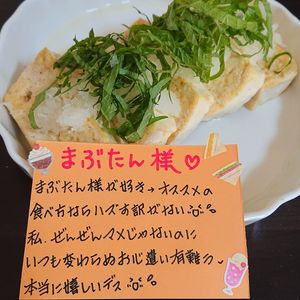 まぶたん様♡
まぶたん様が好き→オススメの
食べ方ならハズす訳がない
私、ぜんぜんマメじゃないのに
いつも変わらぬお心遣い有難う
本当に嬉しいデス